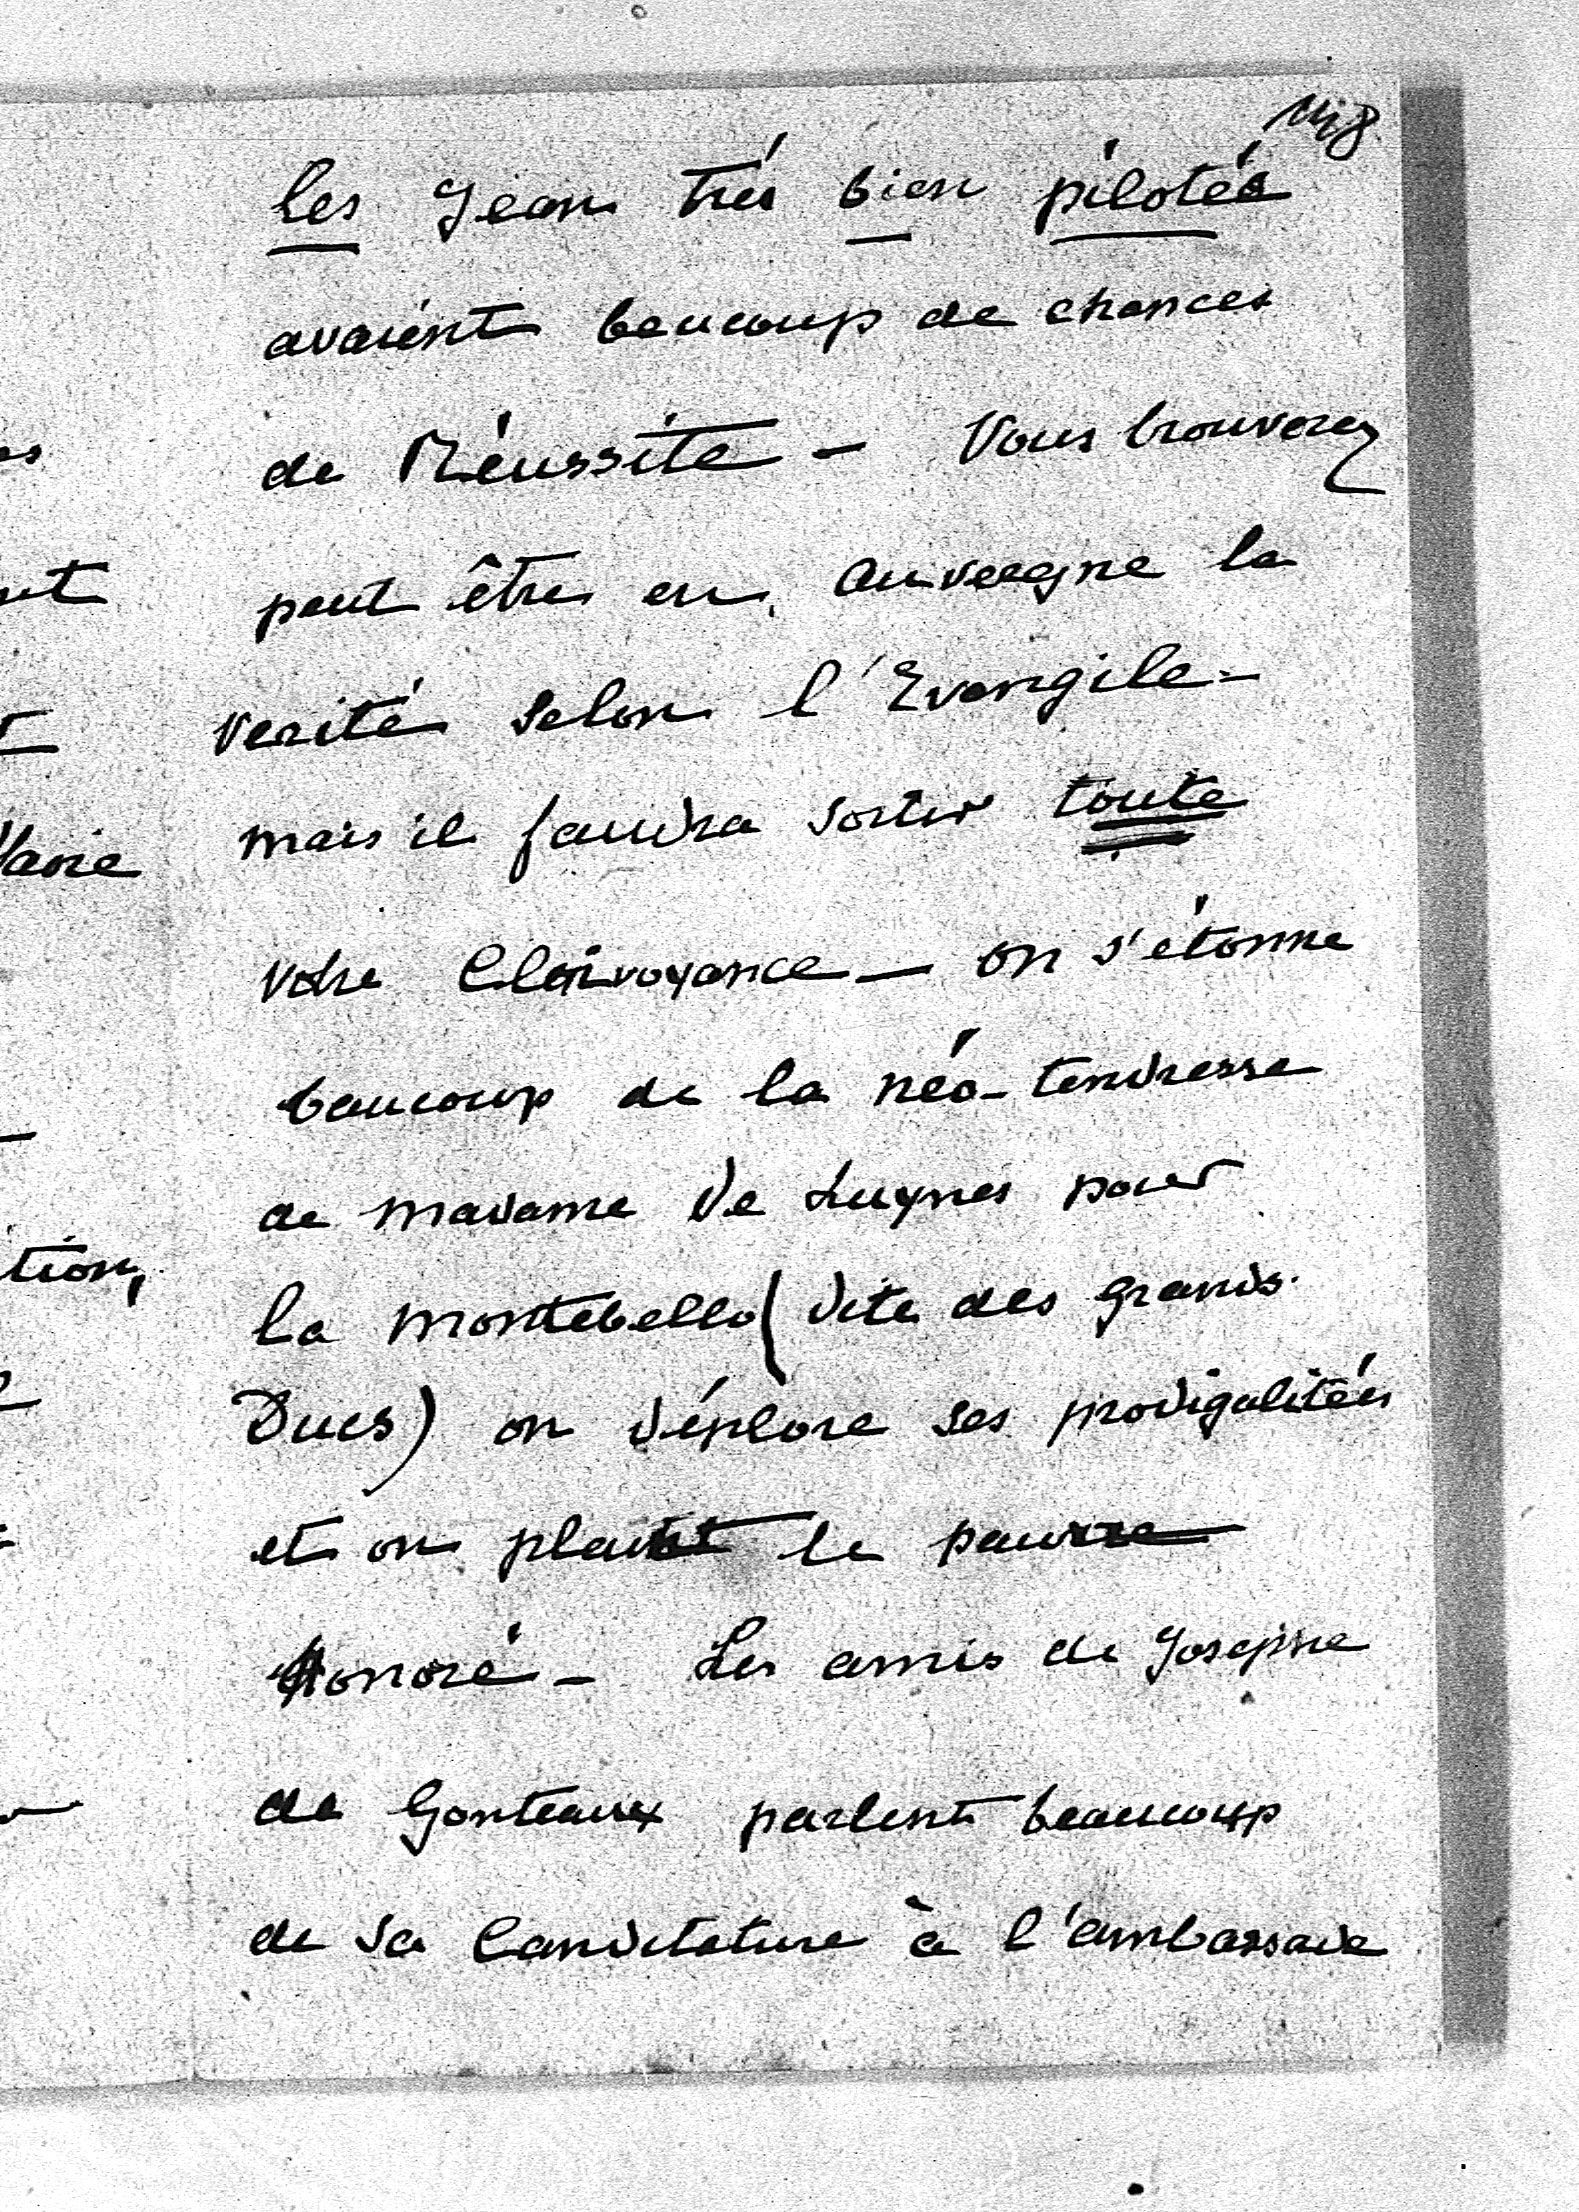 les Jean très bien pilotés
avaient beaucoup de chances
de Réussite – Vous trouverez
peut être en Auvergne la
verité selon l'Evangile –
mais il faudra sortir toute
votre Clairvoyance – on s'étonne
beaucoup de la néo-tendresse
de madame de Luynes pour
la Montebello (dite des grands
Ducs) on déplore ses prodigalités
et on plaint le pauvre
Honoré – Les amis de Josephe
de Gonteaux parlent beaucoup
de sa Candidature à l'ambassade